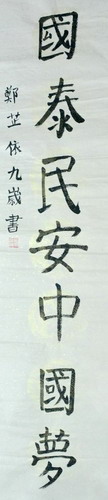 國泰民安中國夢
鄭芷依九歲書